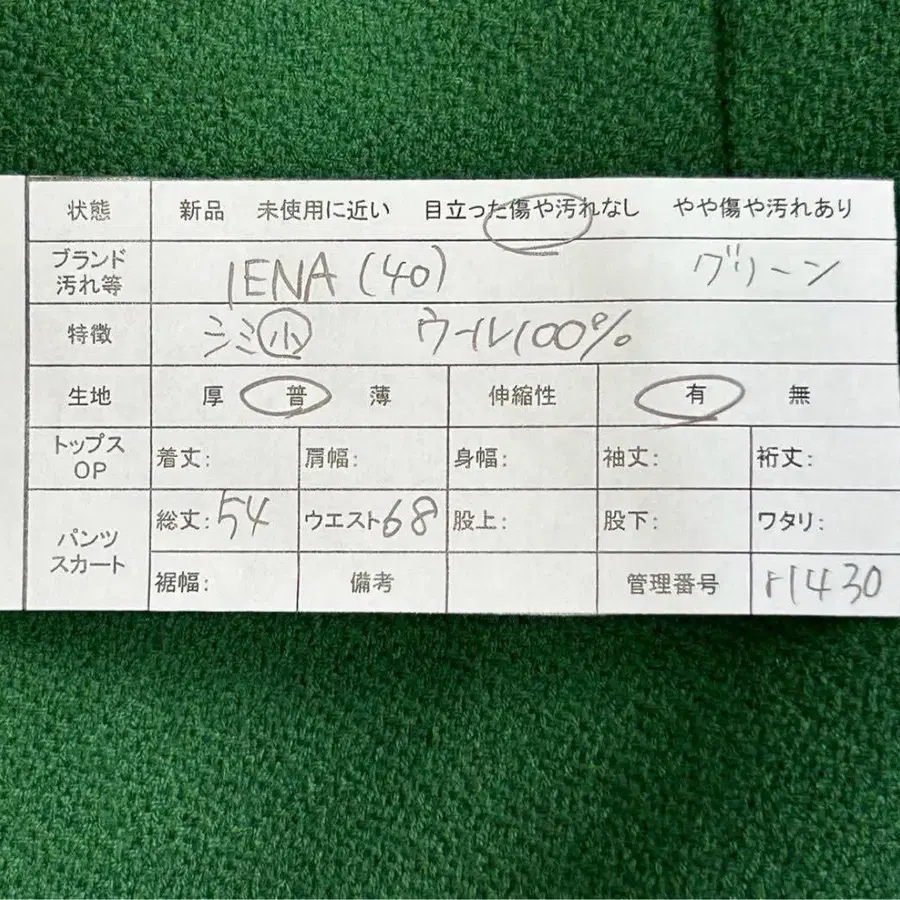 状態 新品 未使用に近い 目立った傷や汚れなし やや傷や汚れあり
ブランド
汚れ等 IENA (40) グリーン
特徴 シミ小 ウール100%
生地 厚 普 薄 伸縮性 有 無
トップス
OP 着丈: 肩幅: 身幅: 袖丈: 裄丈:
パンツ
スカート 総丈:54 ウエスト68 股上: 股下: ワタリ:
裾幅: 備考 管理番号 r1430